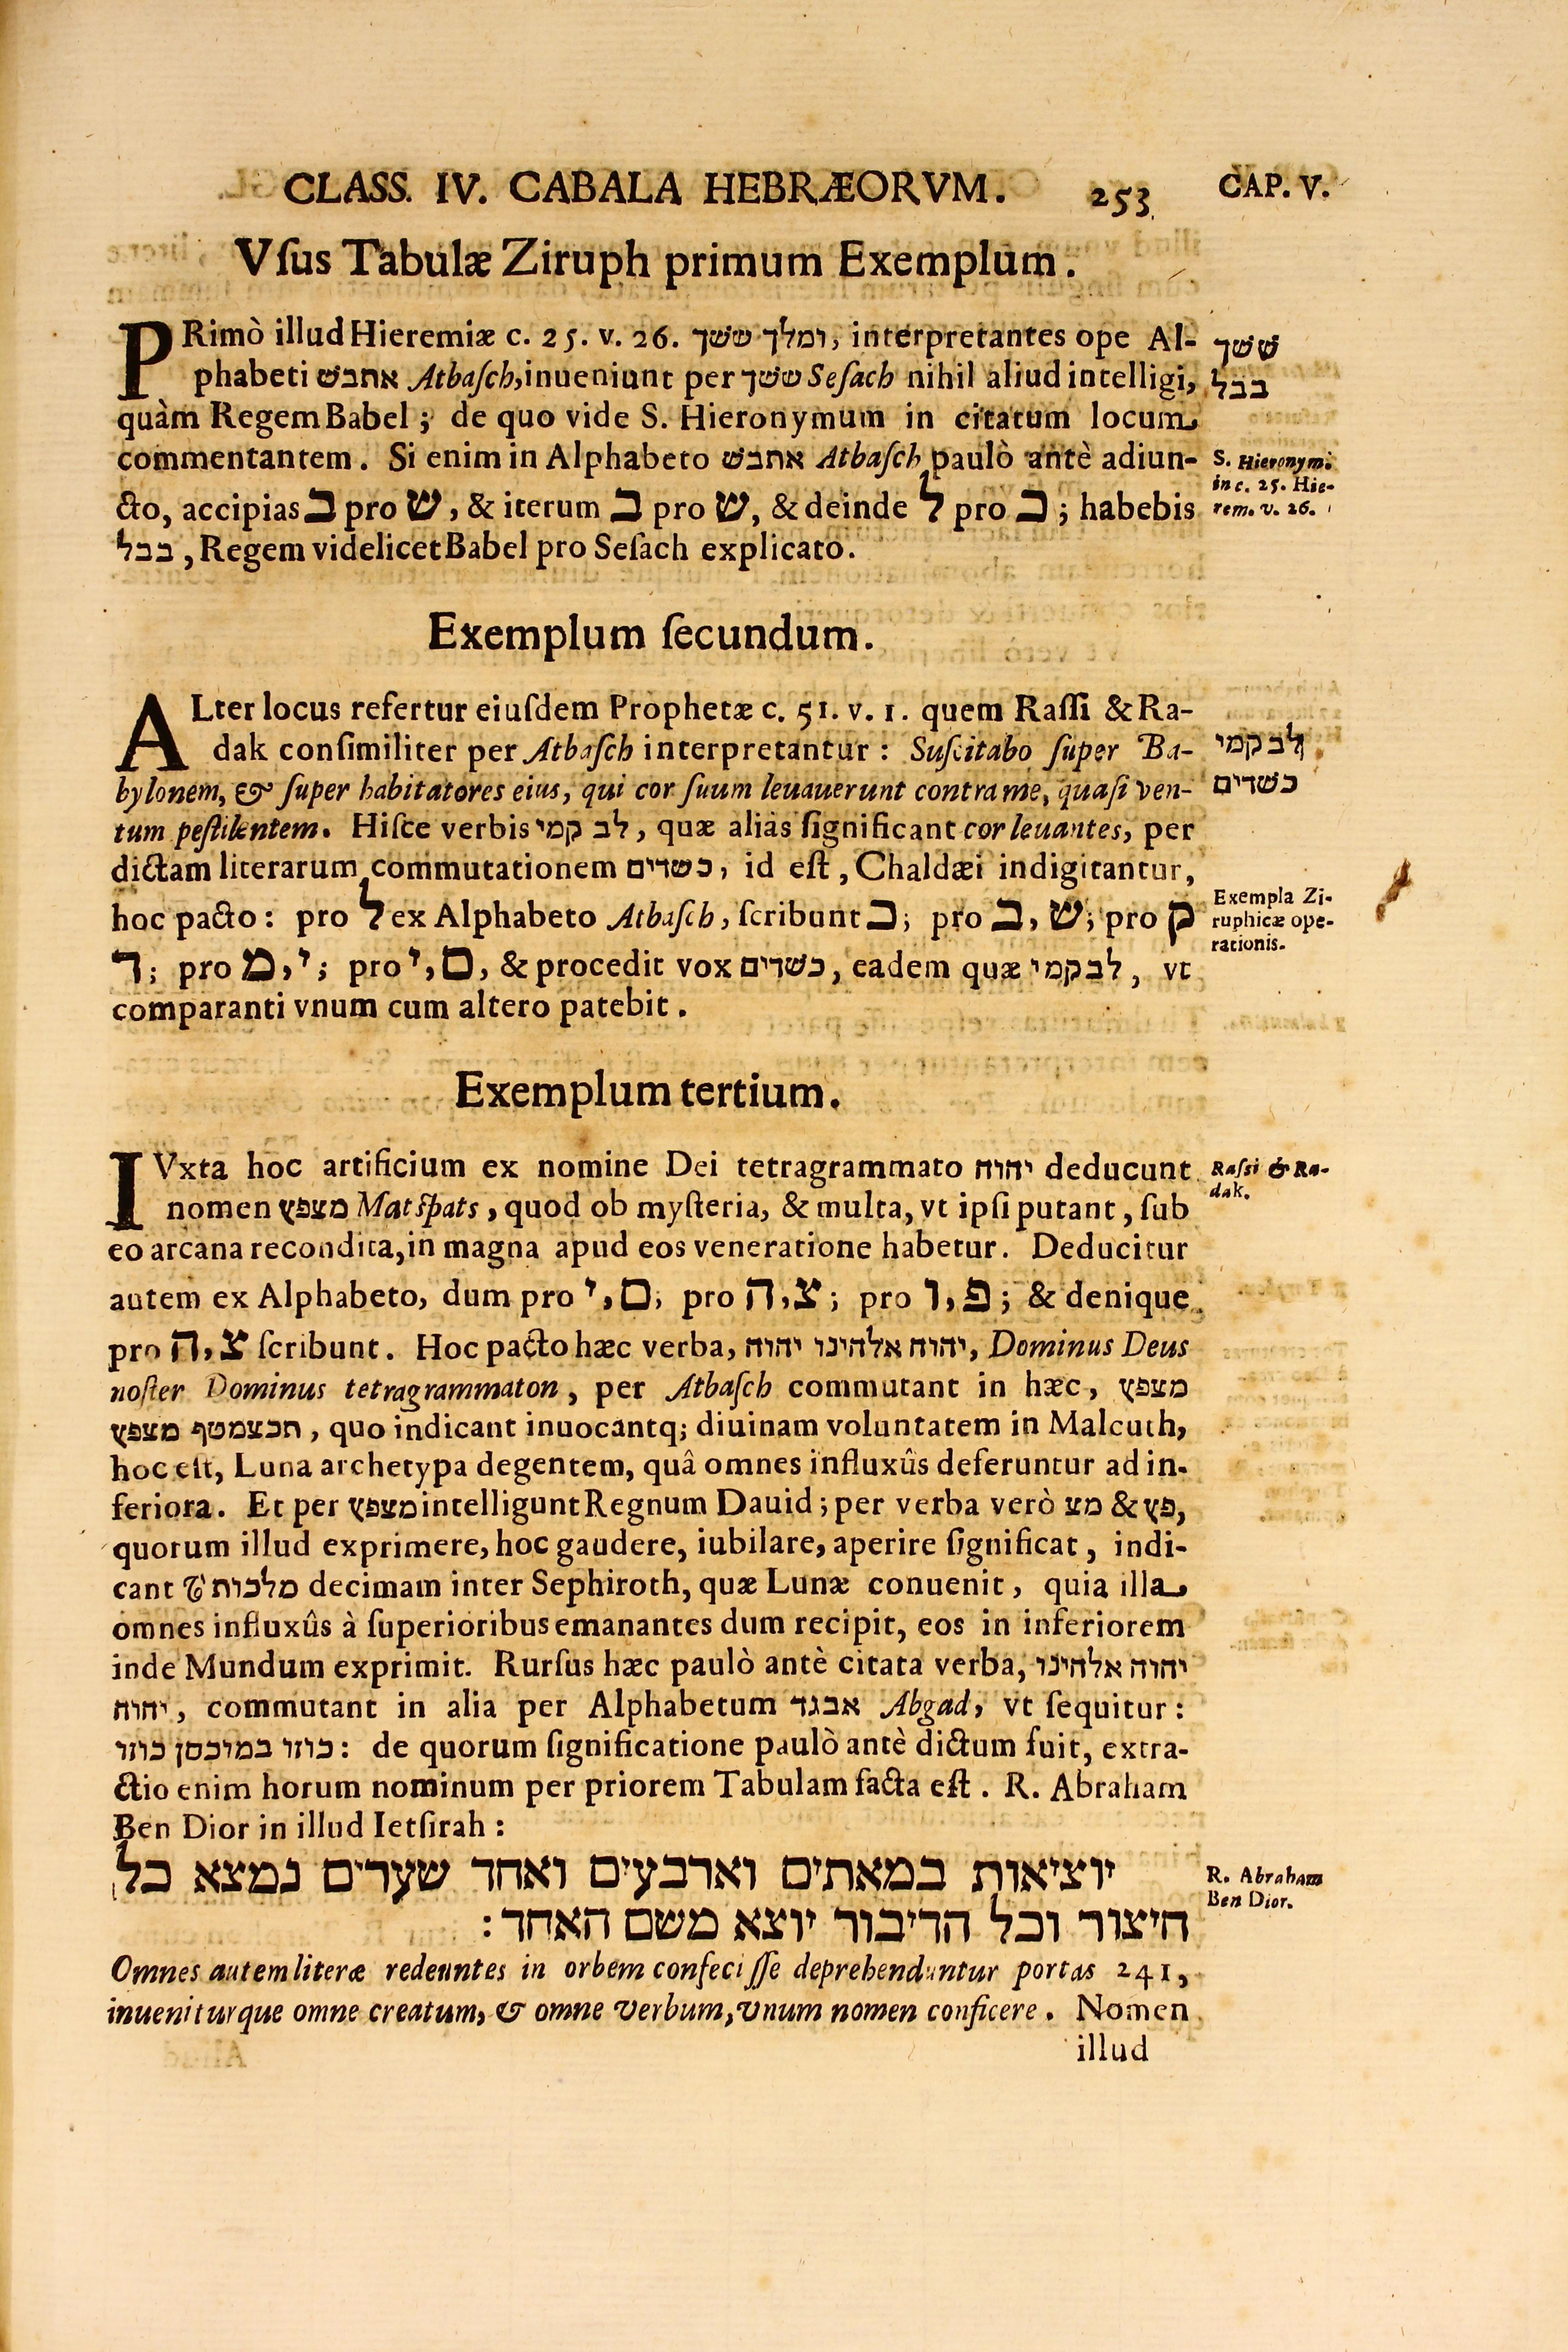 CLASS. IV. CABALA HEBRÆORVM. 253 CAP. V.
Vſus Tabulæ Ziruph primum Exemplum.
PRimò illud Hieremiæ c. 25. v. 26. ומלך ששך, interpretantes ope Al-
phabeti אתבש Atbaſch, inueniunt per ששך Seſach nihil aliud intelligi,
quàm Regem Babel; de quo vide S. Hieronymum in citatum locum
commentantem. Si enim in Alphabeto אתבש Atbaſch paulò antè adiun-
cto, accipias ב pro ש, & iterum ב pro ש, & deinde ל pro כ; habebis
בבל, Regem videlicet Babel pro Seſach explicato.
ששך
בבל
S. Hieronym.
in c. 25. Hie-
rem. v. 26.
Exemplum ſecundum.
ALter locus refertur eiuſdem Prophetæ c. 51. v. 1. quem Raſſi & Ra-
dak conſimiliter per Atbaſch interpretantur: Suſcitabo ſuper Ba-
bylonem, & ſuper habitatores eius, qui cor ſuum leuauerunt contra me, quaſi ven-
tum peſtilentem. Hiſce verbis לב קמי, quæ aliàs ſignificant cor leuantes, per
dictam literarum commutationem כשדים, id eſt, Chaldæi indigitantur,
hoc pacto: pro ל ex Alphabeto Atbaſch, ſcribunt כ; pro ב, ש; pro ק
ד; pro מ, י; pro י, ם, & procedit vox כשדים, eadem quæ לבקמי, vt
comparanti vnum cum altero patebit.
לב קמי
כשדים
Exempla Zi-
ruphicæ ope-
rationis.
Exemplum tertium.
IVxta hoc artificium ex nomine Dei tetragrammato יהוה deducunt
nomen מצפץ Matſpats, quod ob myſteria, & multa, vt ipſi putant, ſub
eo arcana recondita, in magna apud eos veneratione habetur. Deducitur
autem ex Alphabeto, dum pro י, ם; pro ה, צ; pro ו, פ; & denique
pro ה, צ ſcribunt. Hoc pacto hæc verba, יהוה אלהינו יהוה, Dominus Deus
noſter Dominus tetragrammaton, per Atbaſch commutant in hæc, מצפץ
תכצמטף מצפץ, quo indicant inuocantq; diuinam voluntatem in Malcuth,
hoc eſt, Luna archetypa degentem, quâ omnes influxûs deferuntur ad in-
feriora. Et per מצפץ intelligunt Regnum Dauid; per verba verò מצ & פץ,
quorum illud exprimere, hoc gaudere, iubilare, aperire ſignificat, indi-
cant מלכות decimam inter Sephiroth, quæ Lunæ conuenit, quia illa
omnes influxûs à ſuperioribus emanantes dum recipit, eos in inferiorem
inde Mundum exprimit. Rurſus hæc paulò antè citata verba, יהוה אלהינו
יהוה, commutant in alia per Alphabetum אבגד Abgad, vt ſequitur:
כוזו במוכסן כוזו: de quorum ſignificatione paulò antè dictum fuit, extra-
ctio enim horum nominum per priorem Tabulam facta eſt. R. Abraham
Ben Dior in illud Ietſirah:
Raſsi & Ra-
dak.
יוציאות במאתים וארבעים ואחד שערים נמצא כל
היצור וכל הדיבור יוצא משם האחד:
R. Abraham
Ben Dior.
Omnes autem literæ redeuntes in orbem confeciſſe deprehenduntur portas 241,
inueniturque omne creatum, & omne verbum, vnum nomen conficere. Nomen
illud